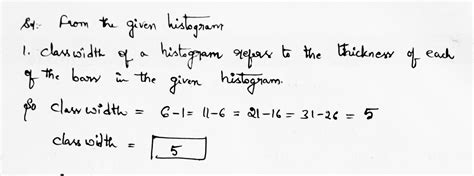 Sol:- From the given histogram
1. class width of a histogram refers to the thickness of each
of the bars in the given histogram.
So class width = 6-1 = 11-6 = 21-16 = 31-26 = 5
class width = 5